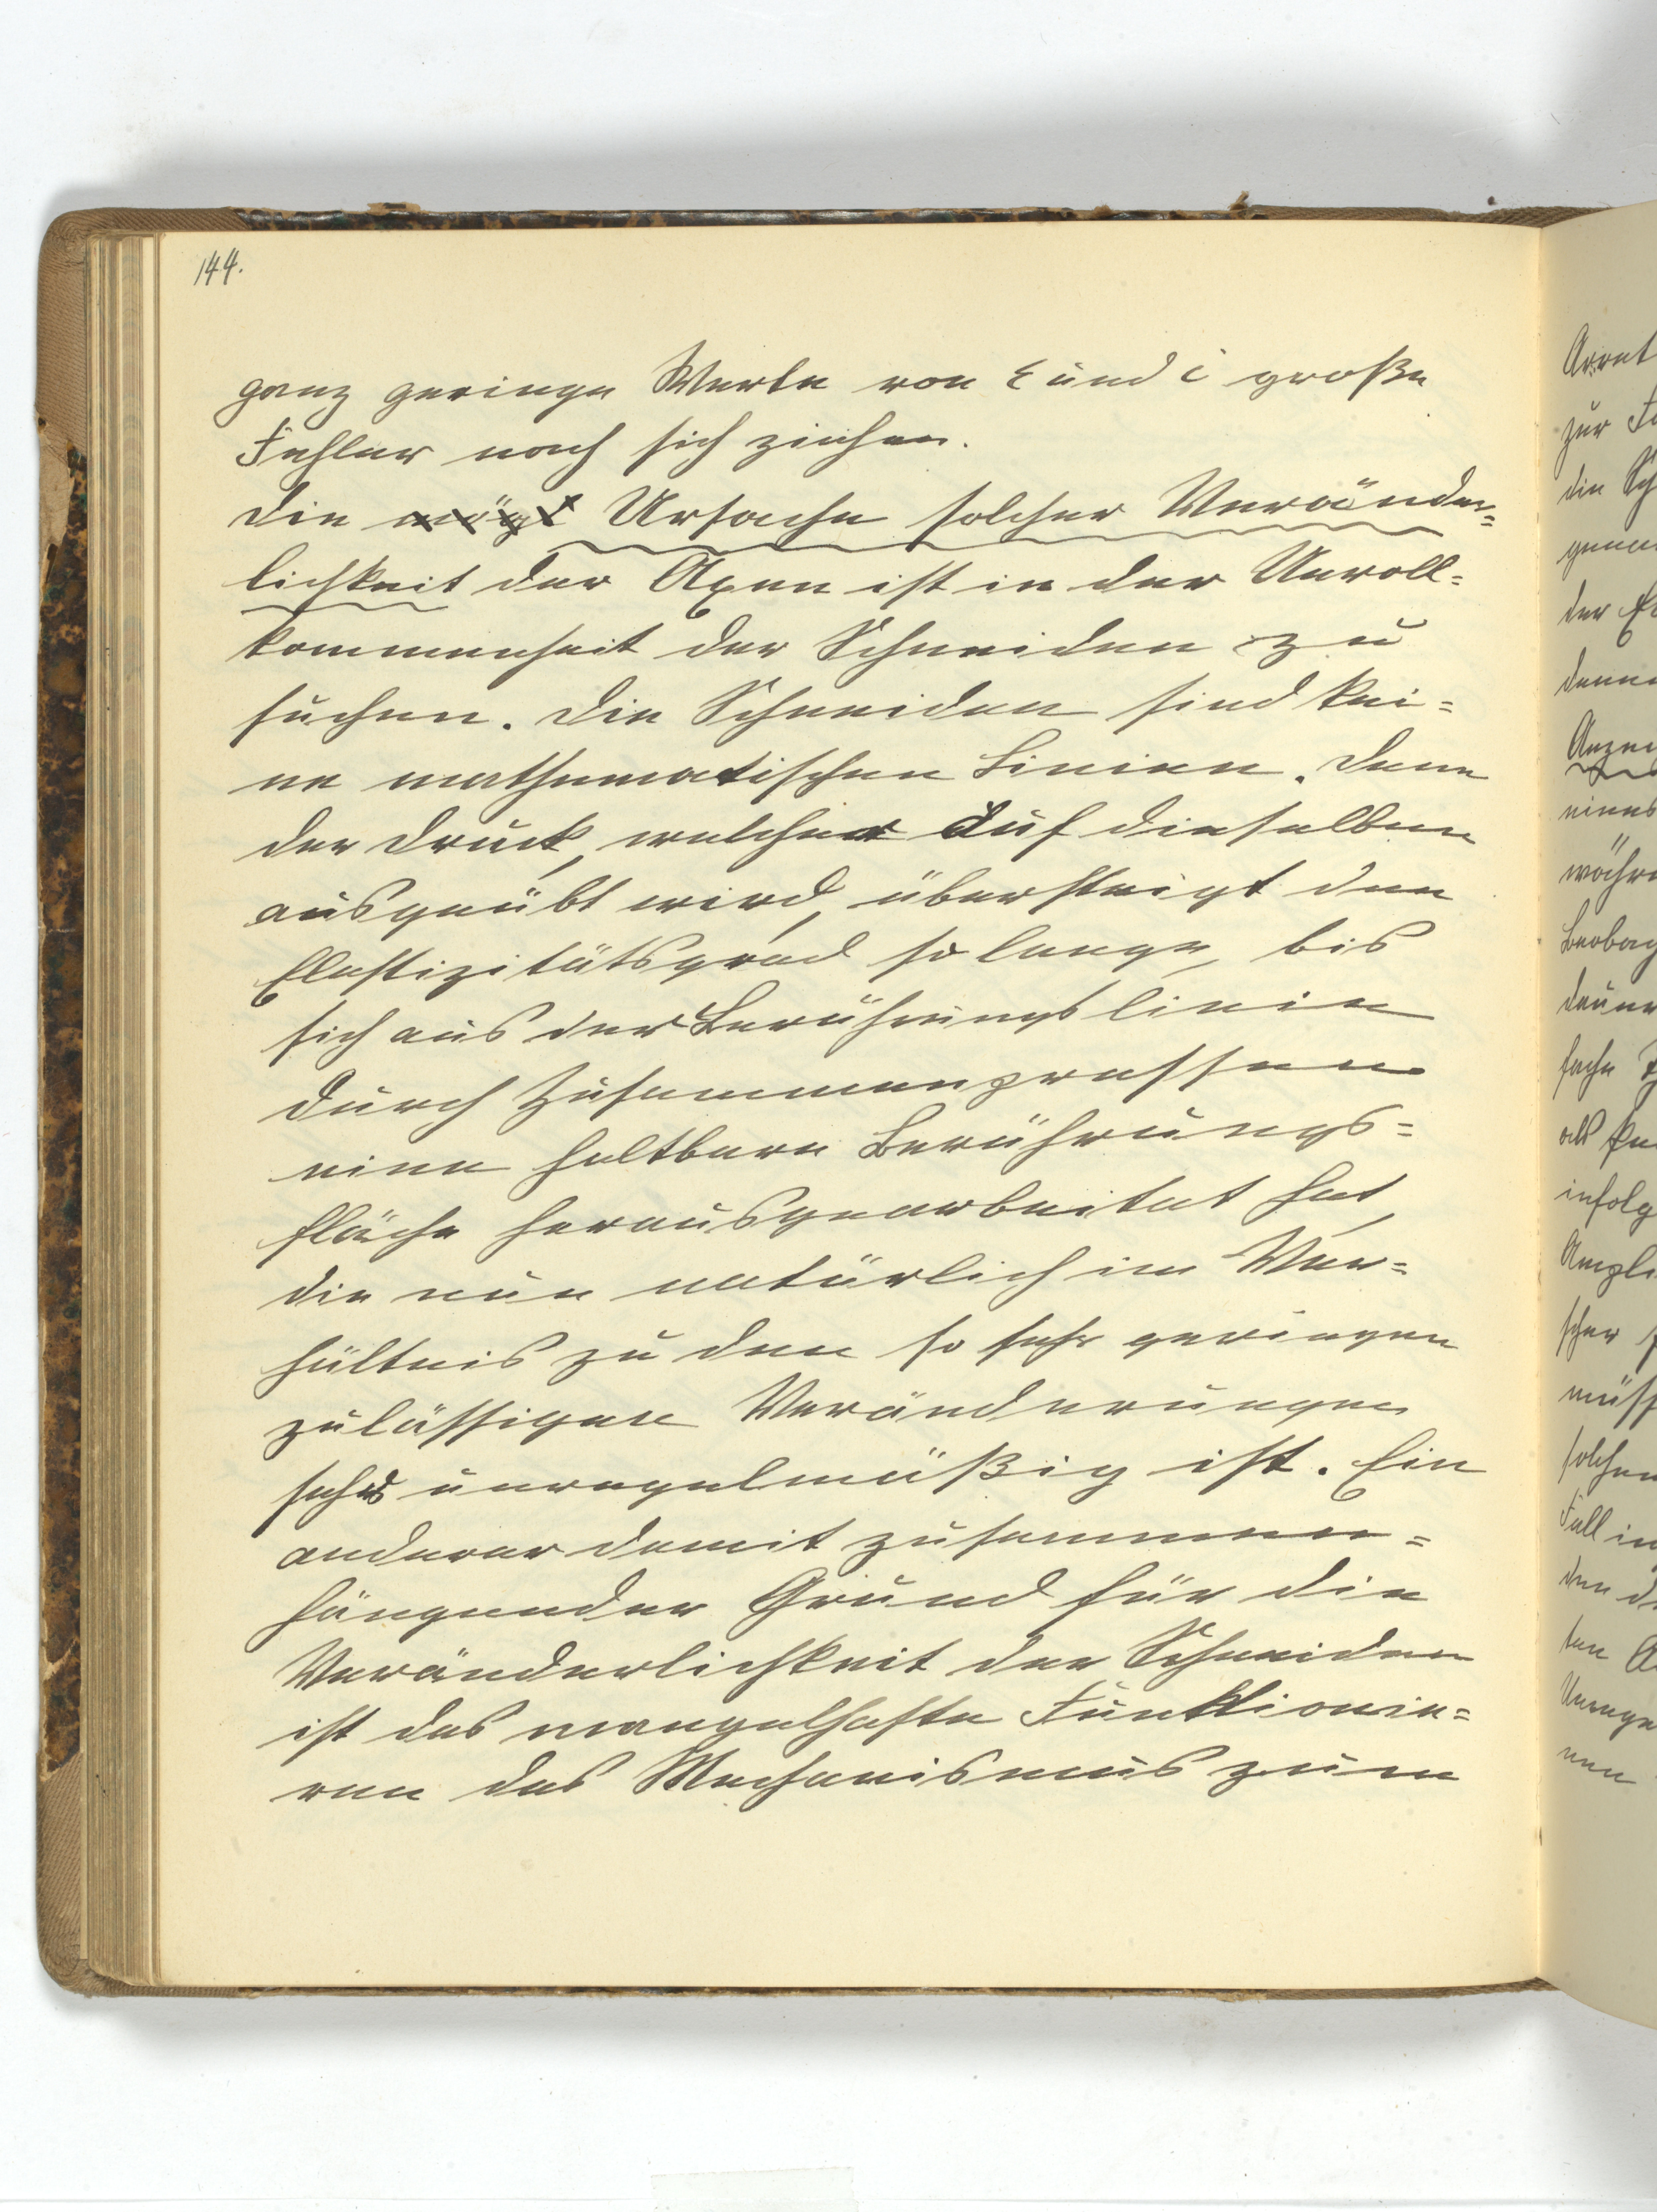 144.
ganz geringe Werte von ε und i große
Fehler nach sich ziehen.
Die mögl Ursache solcher Veränder=
lichkeit der Axen ist in der Unvoll=
kommenheit der Schneiden zu
suchen. Die Schneiden sind kei=
ne mathematischen Linien. Denn
der Druck, welcher auf dieselben
ausgeübt wird, übersteigt den
Elastizitätsgrad so lange, bis
sich aus der Berührungslinie
durch Zusammenpressen
eine haltbare Berührungs=
fläche herausgearbeitet hat,
die nun natürlich im Ver=
hältnis zu den so sehr geringen
zulässigen Veränderungen
sehr unregelmäßig ist. Ein
anderer damit zusammen=
hängender Grund für die
Veränderlichkeit der Schneiden
ist das mangelhafte Funktionie=
ren des Mechanismus zum
Arret
zur
die Sch
genau
der
Anzei
eines
währe
Beobac
dauer
fache
als
infolg
Ampli
scher
müss
solchen
Fall in
den
ten
Unrege
nen